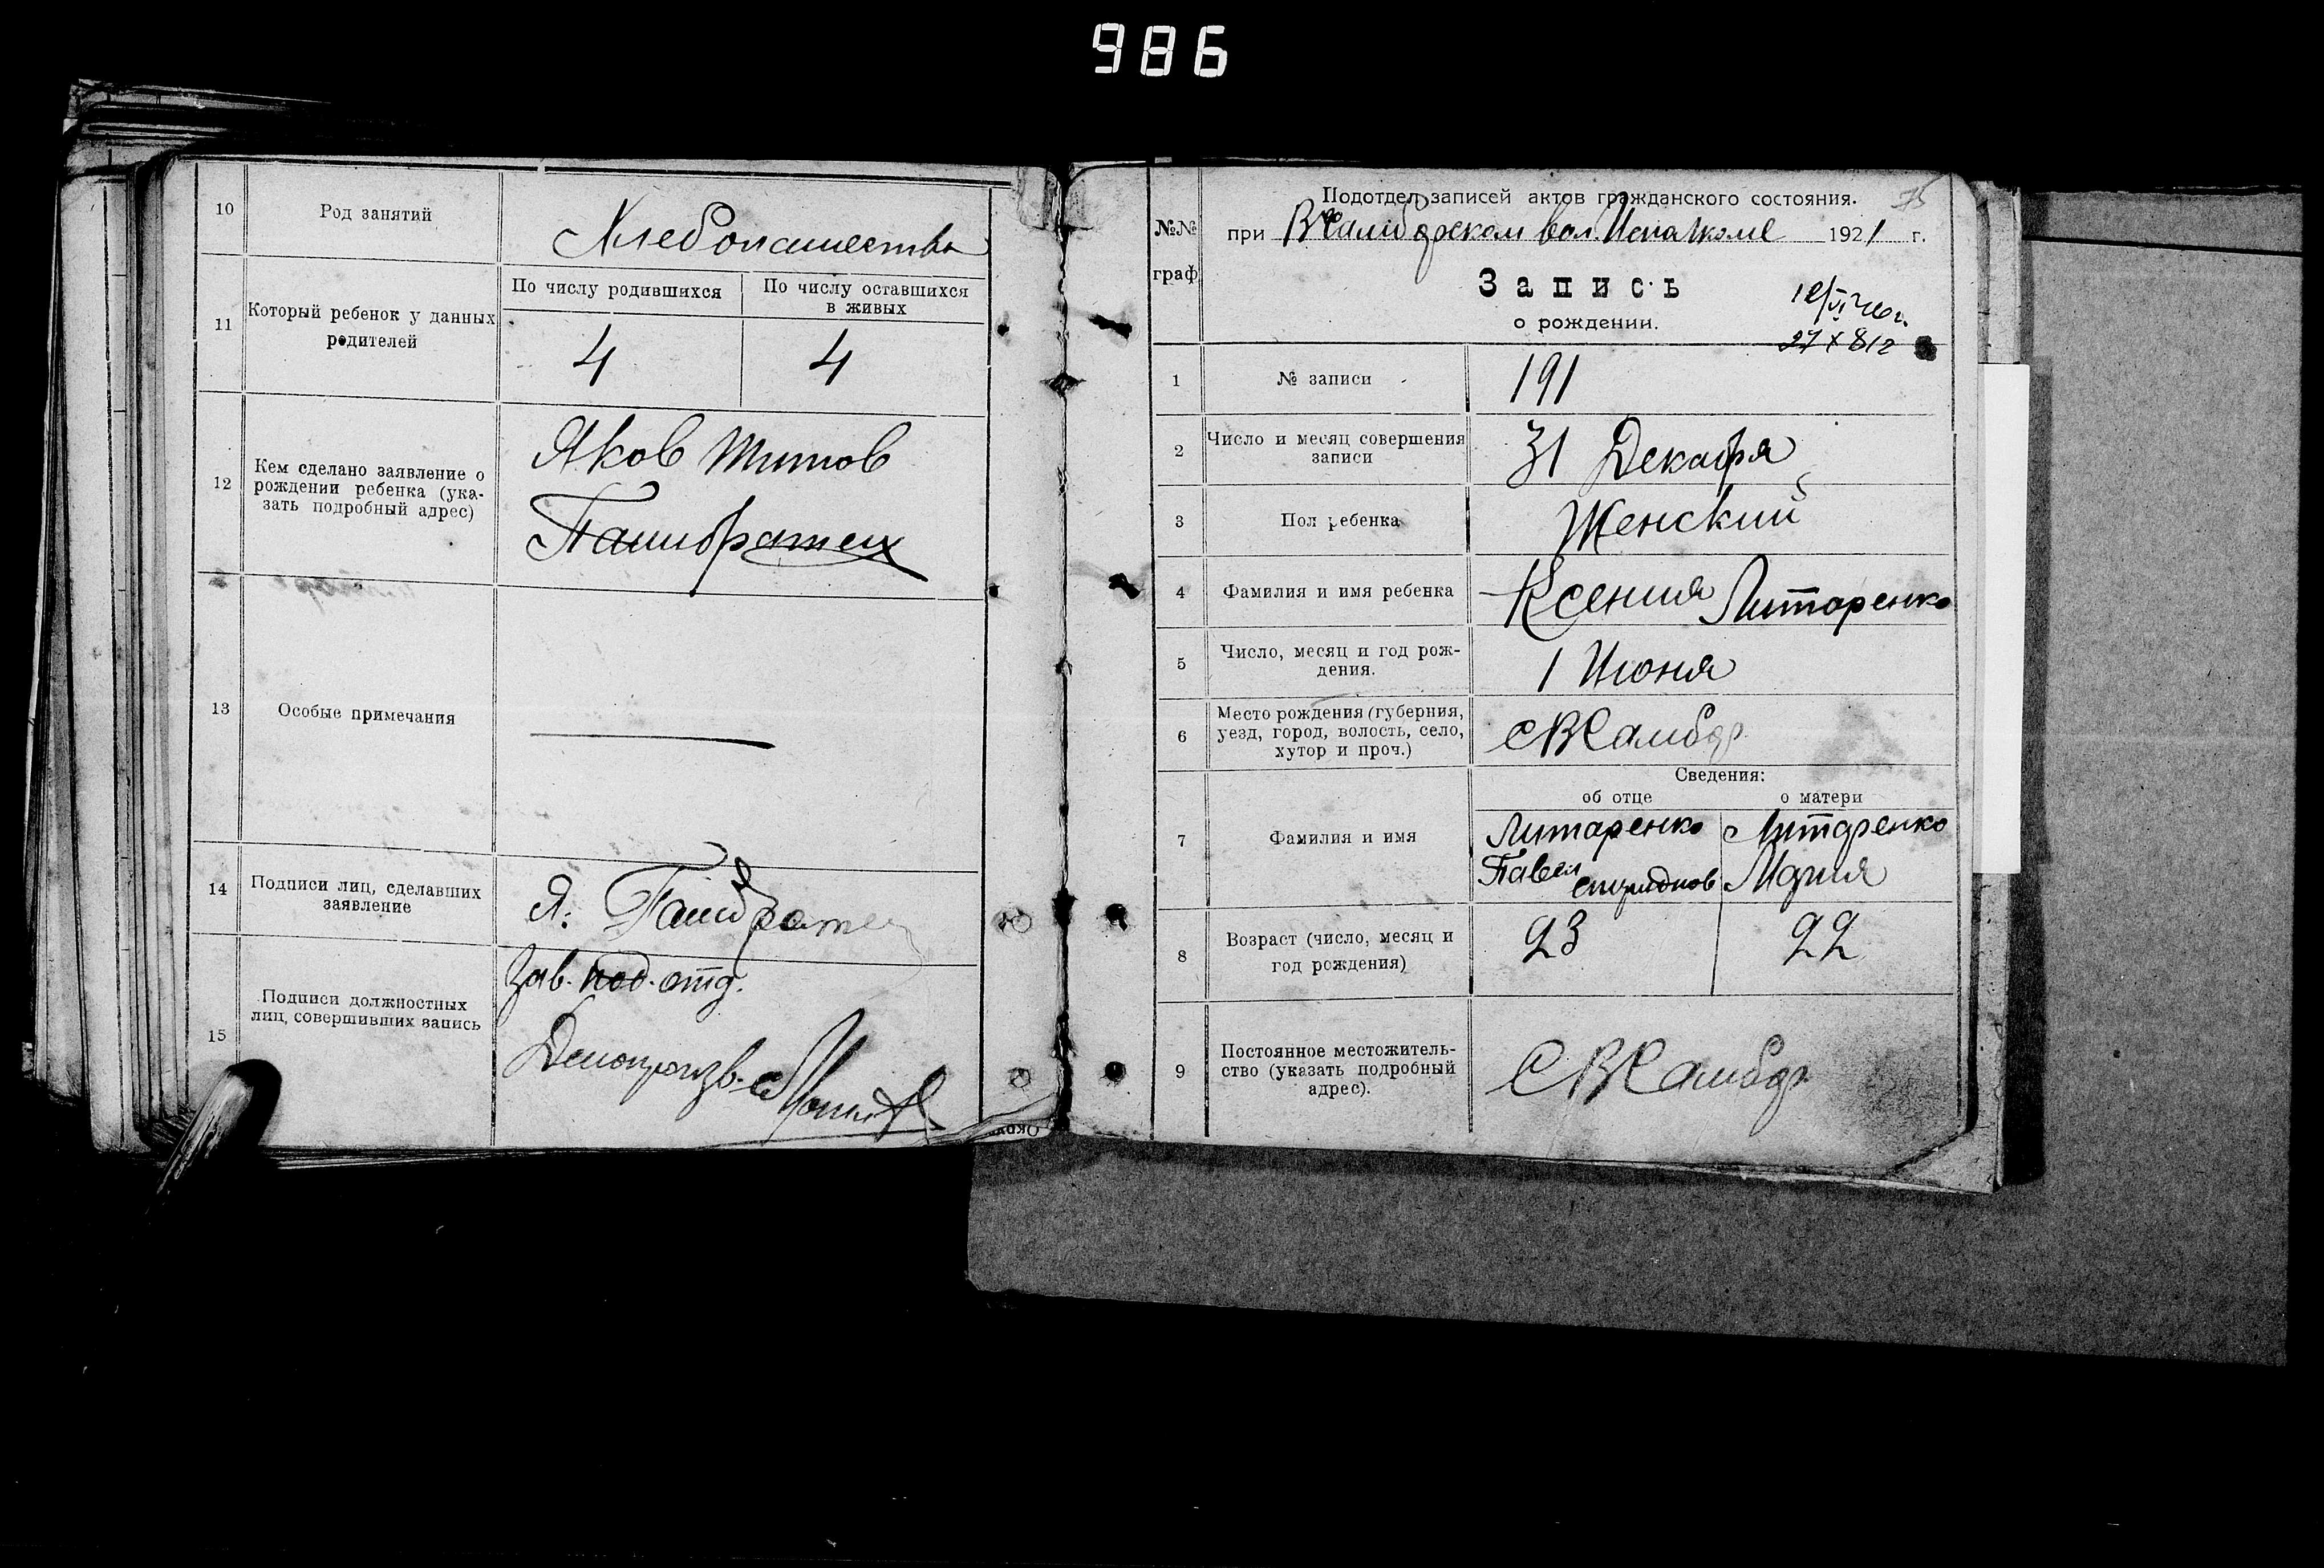 986
10
Род занятий
Хлебопашество
11
Который ребенок у данных
родителей
По числу родившихся
По числу оставшихся
в живых
4
4
12
Кем сделано заявление о
рождении ребенка (ука-
зать подробный адрес)
Яков Титов
13
Особые примечания
14
Подписи лиц, сделавших
заявление
Я.
15
Подписи должностных
лиц, совершивших запись
Зав. под. отд.
Делопроизв.
75
№№
граф
Подотдел записей актов гражданского состояния.
при Исполкоме 1921 г.
Запись
о рождении.
27 X 812
1
№ записи
191
2
Число и месяц совершения
записи
31 Декабря
3
Пол ребенка
Женский
4
Фамилия и имя ребенка
Ксения Литаренко
5
Число, месяц и год рож-
дения.
1 Июня
6
Место рождения (губерния,
уезд, город, волость, село,
хутор и проч.)
СВСамбор
Сведения:
об отце
о матери
7
Фамилия и имя
Литаренко
Павел Спиридонов
Литаренко
Мария
8
Возраст (число, месяц и
год рождения)
23
22
9
Постоянное местожитель-
ство (указать подробный
адрес).
СВСамбор